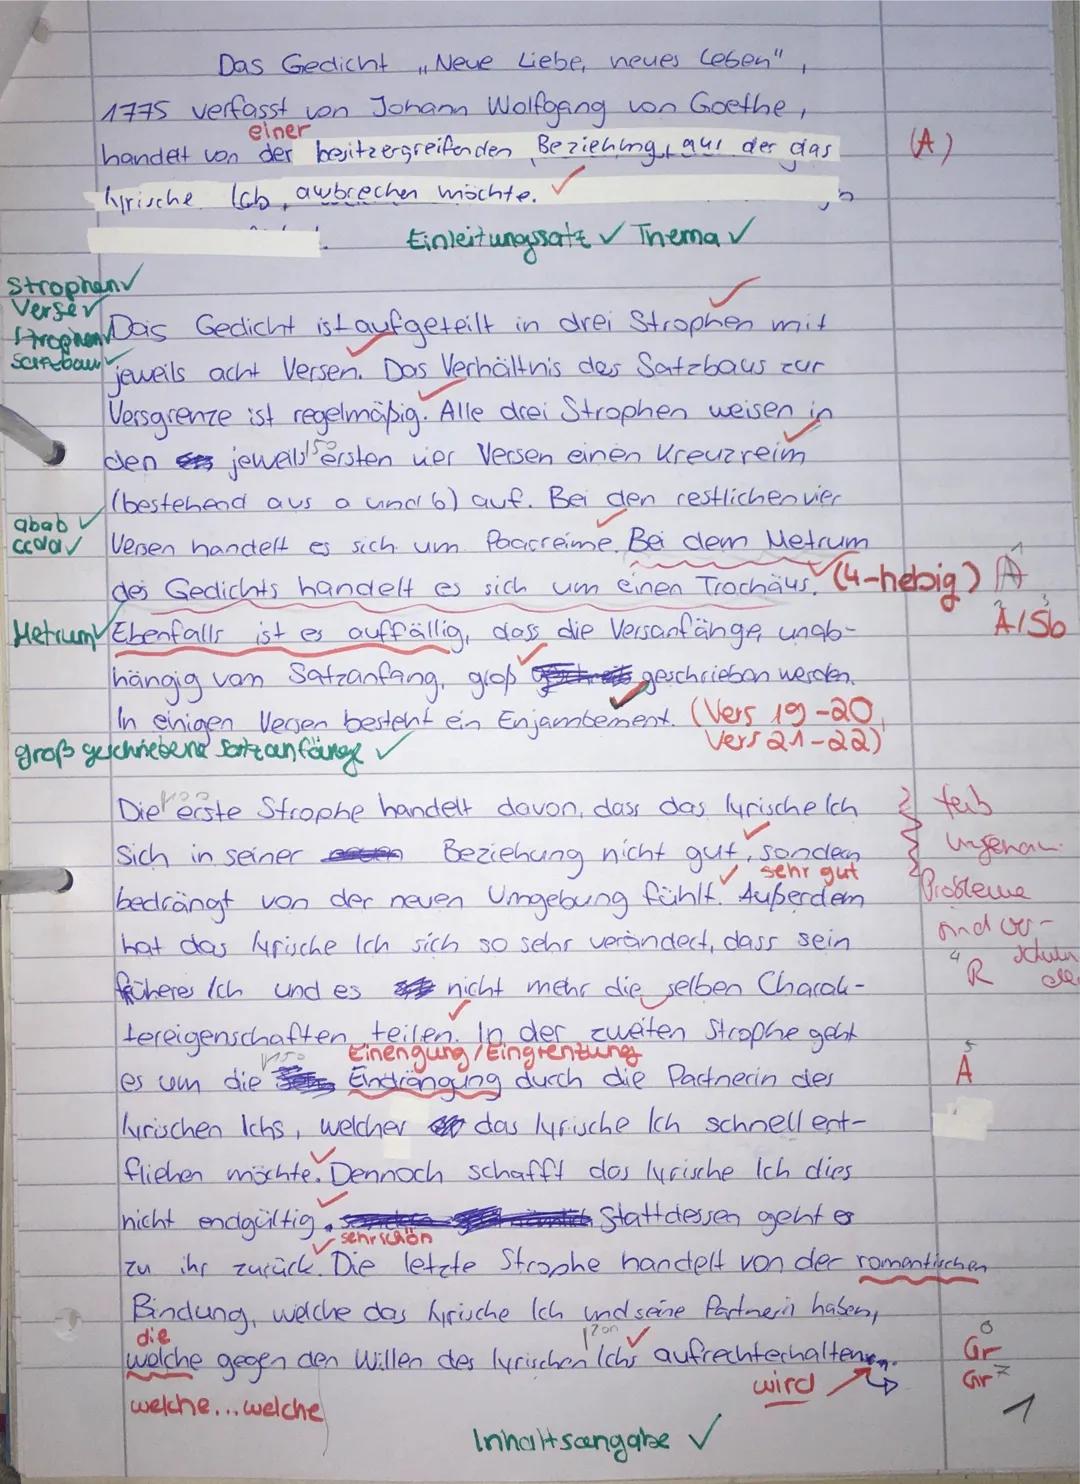 Das Gedicht „Neue Liebe, neues Leben",
1775 verfasst von Johann Wolfgang von Goethe,
einer
handelt von der besitzergreifenden Beziehung, aus der das (A)
lyrische Ich, ausbrechen möchte. ✓
Einleitungssatz ✓ Thema ✓
Strophen ✓
Verse ✓
Strophen ✓ Das Gedicht ist aufgeteilt in drei Strophen mit
Satzbau ✓ jeweils acht Versen. Das Verhältnis des Satzbaus zur
Versgrenze ist regelmäßig. Alle drei Strophen weisen in
den jeweils 50 ersten vier Versen einen Kreuzreim
(bestehend aus a und b) auf. Bei den restlichen vier
abab ✓
ccdd ✓ Versen handelt es sich um Paarreime. Bei dem Metrum
des Gedichts handelt es sich um einen Trochäus. (4-hebig) A 1
Metrum ✓ Ebenfalls ist es auffällig, dass die Versanfänge, unab- A/Sb
hängig vom Satzanfang, groß geschrieben werden.
In einigen Versen besteht ein Enjambement. (Vers 19-20,
Vers 21-22)
groß geschriebene Satzanfänge ✓
Die 100 erste Strophe handelt davon, dass das lyrische Ich
sich in seiner Beziehung nicht gut, sondern ungenau
sehr gut
bedrängt von der neuen Umgebung fühlt. Außerdem Probleme
hat das lyrische Ich sich so sehr verändert, dass sein
früheres Ich und es nicht mehr die selben Charak- 4 R
tereigenschaften teilen. In der zweiten Strophe geht
Einengung/Eingrenzung
150
es um die Endrängung durch die Partnerin des 5 A
lyrischen Ichs, welcher das lyrische Ich schnell ent-
fliehen möchte. Dennoch schafft das lyrische Ich dies
nicht endgültig. Stattdessen geht es
sehr schön
zu ihr zurück. Die letzte Strophe handelt von der romantischen
Bindung, welche das lyrische Ich und seine Partnerin haben,
die 200
welche gegen den Willen des lyrischen Ichs aufrechterhalten. 6 Gr
wird Gr 7
welche...welche 1
Inhaltsangabe ✓